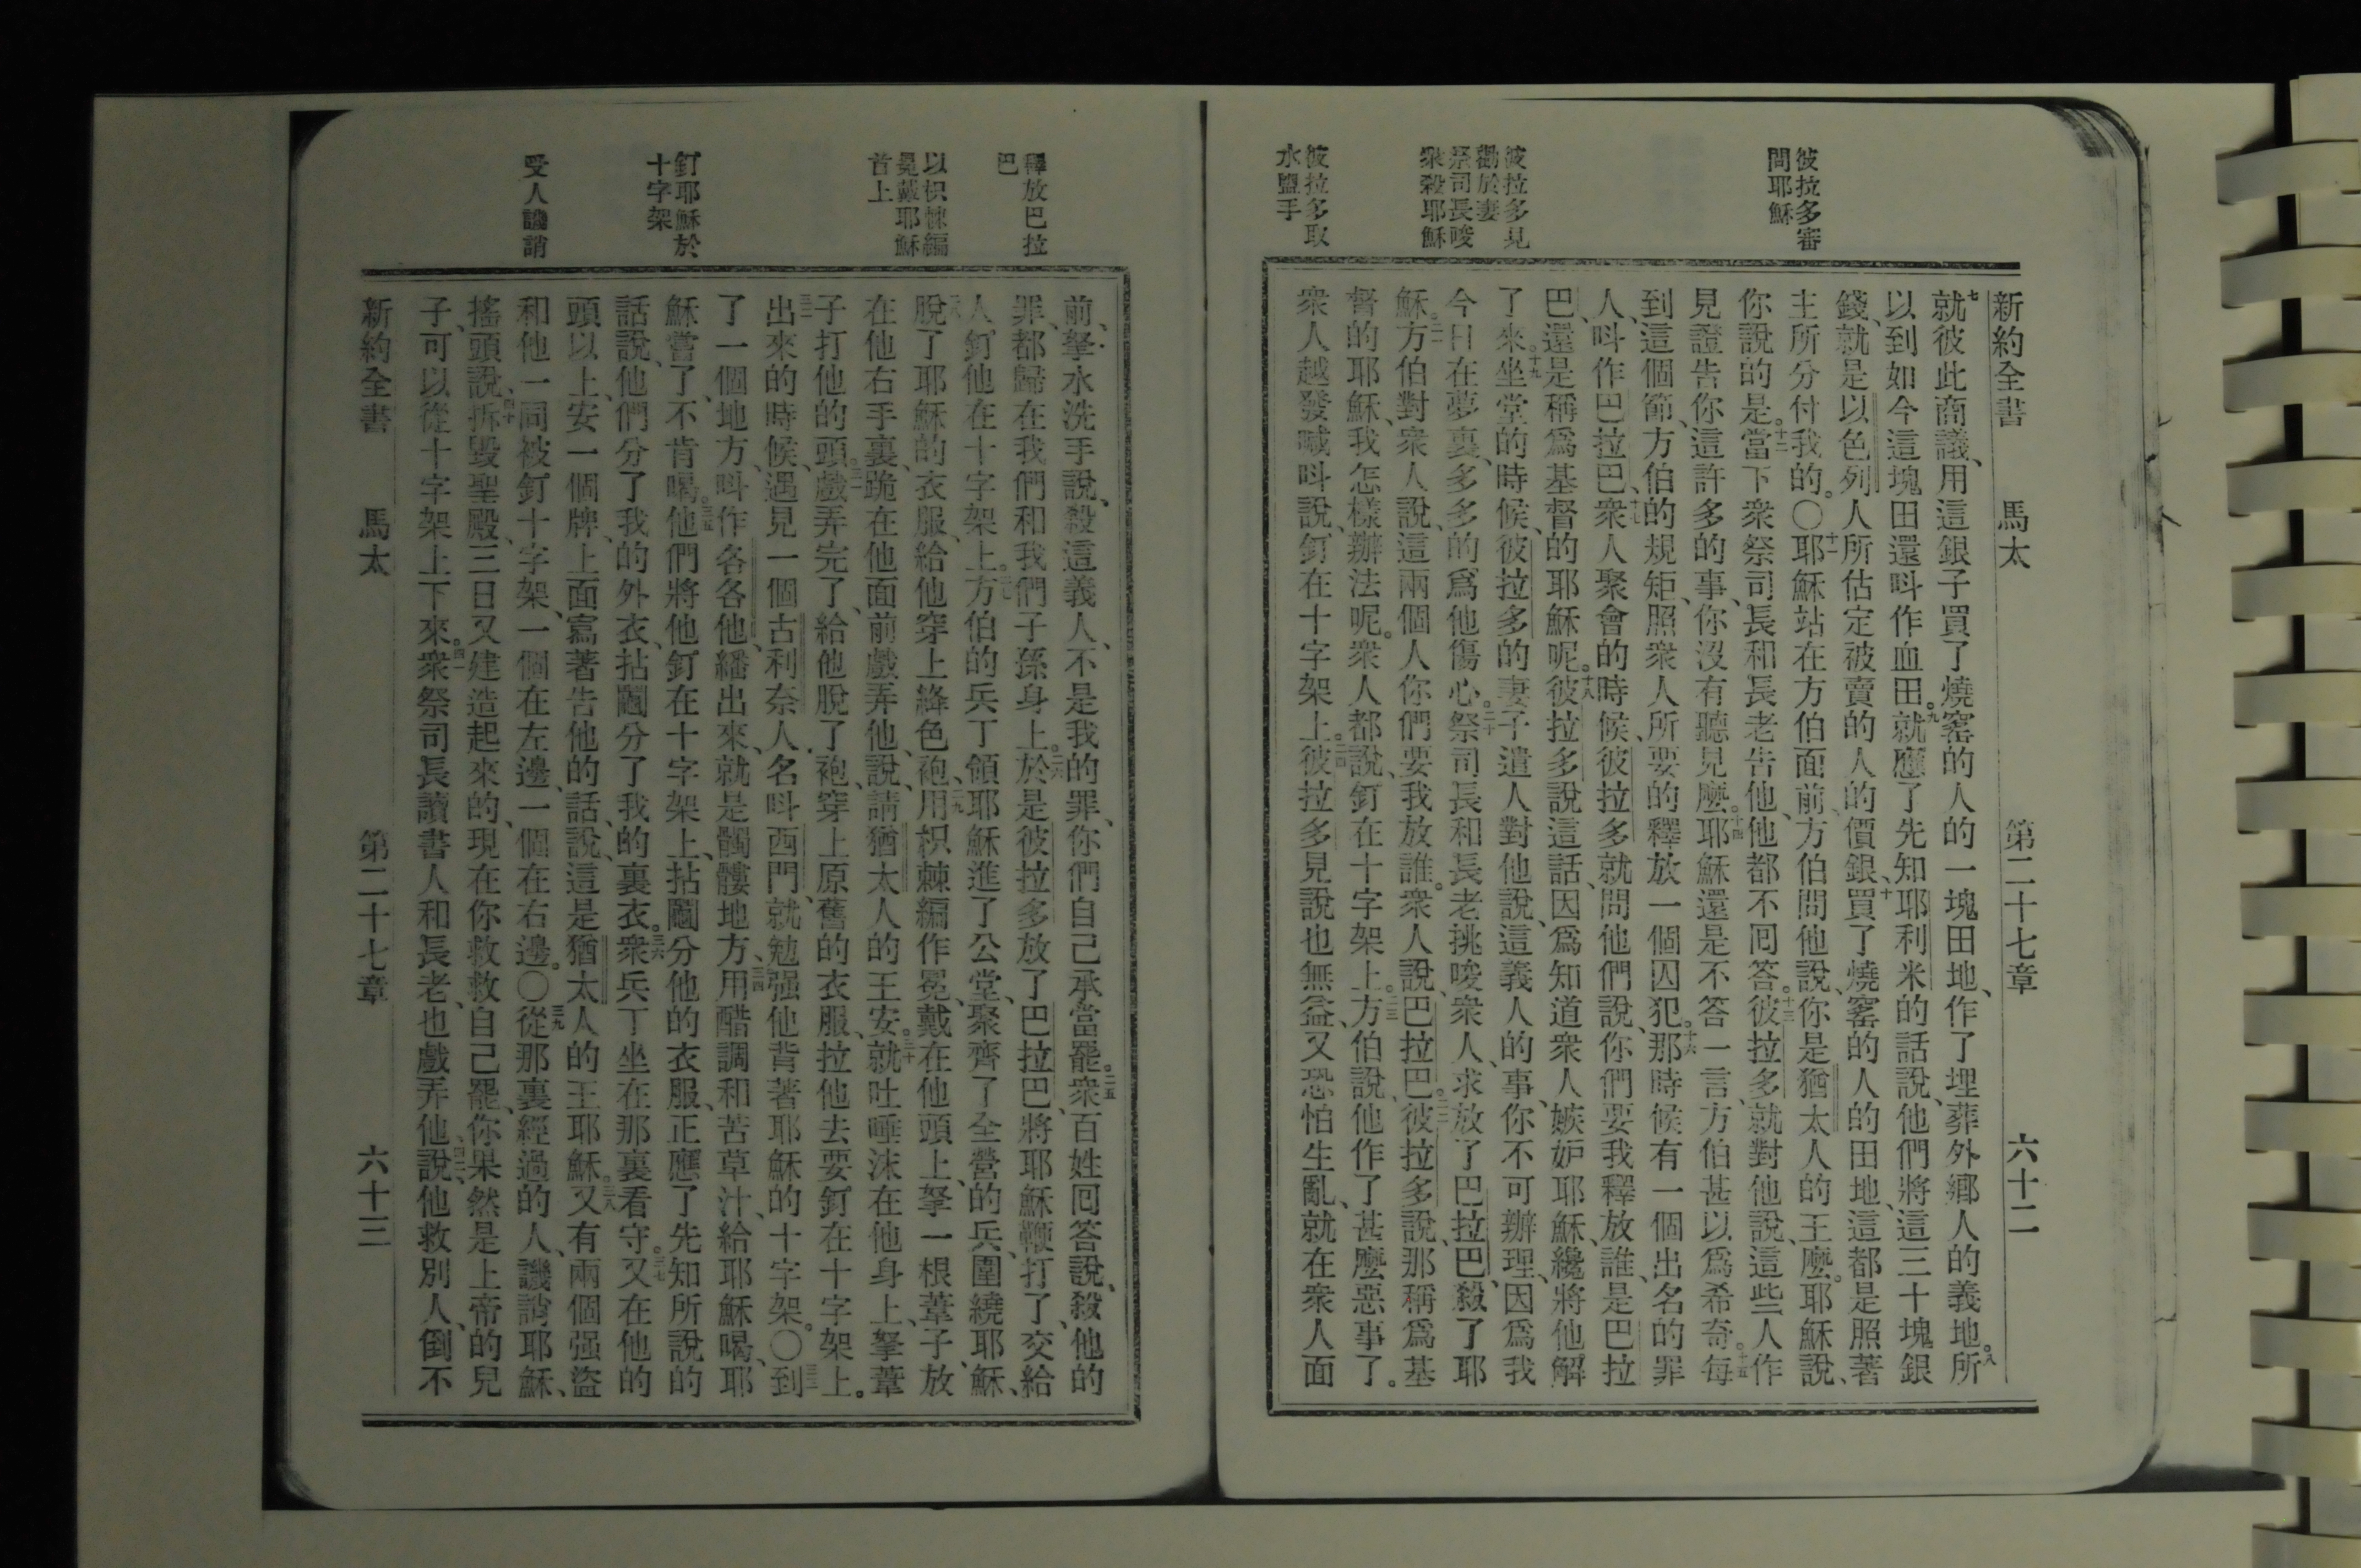 彼拉多審
問耶穌
彼拉多見
勸於妻
祭司長唆
衆殺耶穌
彼拉多取
水盥手
新約全書 馬太 第二十七章 六十二
七就彼此商議、用這銀子買了燒窰的人的一塊田地、作了埋葬外鄉人的義地。八所
以到如今這塊田還呌作血田。九就應了先知耶利米的話說、他們將這三十塊銀
錢、就是以色列人所估定被賣的人的價銀、十買了燒窰的人的田地、這都是照著
主所分付我的。〇十一耶穌站在方伯面前、方伯問他說、你是猶太人的王麼。耶穌說、
你說的是。十二當下衆祭司長和長老告他、他都不囘答。十三彼拉多就對他說、這些人作
見證告你這許多的事、你沒有聽見麼。十四耶穌還是不答一言、方伯甚以爲希奇。十五每
到這個節、方伯的規矩、照衆人所要的釋放一個囚犯。十六那時候有一個出名的罪
人、呌作巴拉巴、十七衆人聚會的時候、彼拉多就問他們說、你們要我釋放誰、是巴拉
巴、還是稱爲基督的耶穌呢。十八彼拉多說這話、因爲知道衆人嫉妒耶穌、纔將他解
了來。十九坐堂的時候、彼拉多的妻子遣人對他說、這義人的事、你不可辦理、因爲我
今日在夢裏、多多的爲他傷心。二十祭司長和長老挑唆衆人、求放了巴拉巴、殺了耶
穌。二一方伯對衆人說、這兩個人你們要我放誰。衆人說、巴拉巴。二二彼拉多說、那稱爲基
督的耶穌、我怎樣辦法呢。衆人都說、釘在十字架上。二三方伯說、他作了甚麼惡事了。
衆人越發喊呌說、釘在十字架上。二四彼拉多見說也無益、又恐怕生亂、就在衆人面
釋放巴拉
巴
以枳棘編
冕戴耶穌
首上
釘耶穌於
十字架
受人譏誚
前、拏水洗手說、殺這義人、不是我的罪、你們自己承當罷。二五衆百姓囘答說、殺他的
罪、都歸在我們和我們子孫身上。二六於是彼拉多放了巴拉巴、將耶穌鞭打了、交給
人、釘他在十字架上。二七方伯的兵丁領耶穌進了公堂、聚齊了全營的兵、圍繞耶穌、
二八脫了耶穌的衣服、給他穿上絳色袍、二九用枳棘編作冕、戴在他頭上、拏一根葦子、放
在他右手裏、跪在他面前戲弄他、說、請猶太人的王安。三十就吐唾沫在他身上、拏葦
子打他的頭。三一戲弄完了、給他脫了袍、穿上原舊的衣服、拉他去要釘在十字架上。
三二出來的時候、遇見一個古利奈人、名呌西門、就勉强他背著耶穌的十字架。〇三三到
了一個地方、呌作各各他、繙出來、就是髑髏地方、三四用醋調和苦草汁、給耶穌喝、耶
穌嘗了、不肯喝。三五他們將他釘在十字架上、拈鬮分他的衣服、正應了先知所說的
話說、他們分了我的外衣、拈鬮分了我的裏衣。三六衆兵丁坐在那裏看守。三七又在他的
頭以上、安一個牌、上面寫著告他的話、說、這是猶太人的王耶穌。三八又有兩個强盜
和他一同被釘十字架、一個在左邊、一個在右邊。〇三九從那裏經過的人、譏誚耶穌、
搖頭說、四十拆毀聖殿、三日又建造起來的、現在你救救自己罷、你果然是上帝的兒
子、可以從十字架上下來。四一衆祭司長讀書人和長老、也戲弄他、四二說、他救別人、倒不
新約全書 馬太 第二十七章 六十三